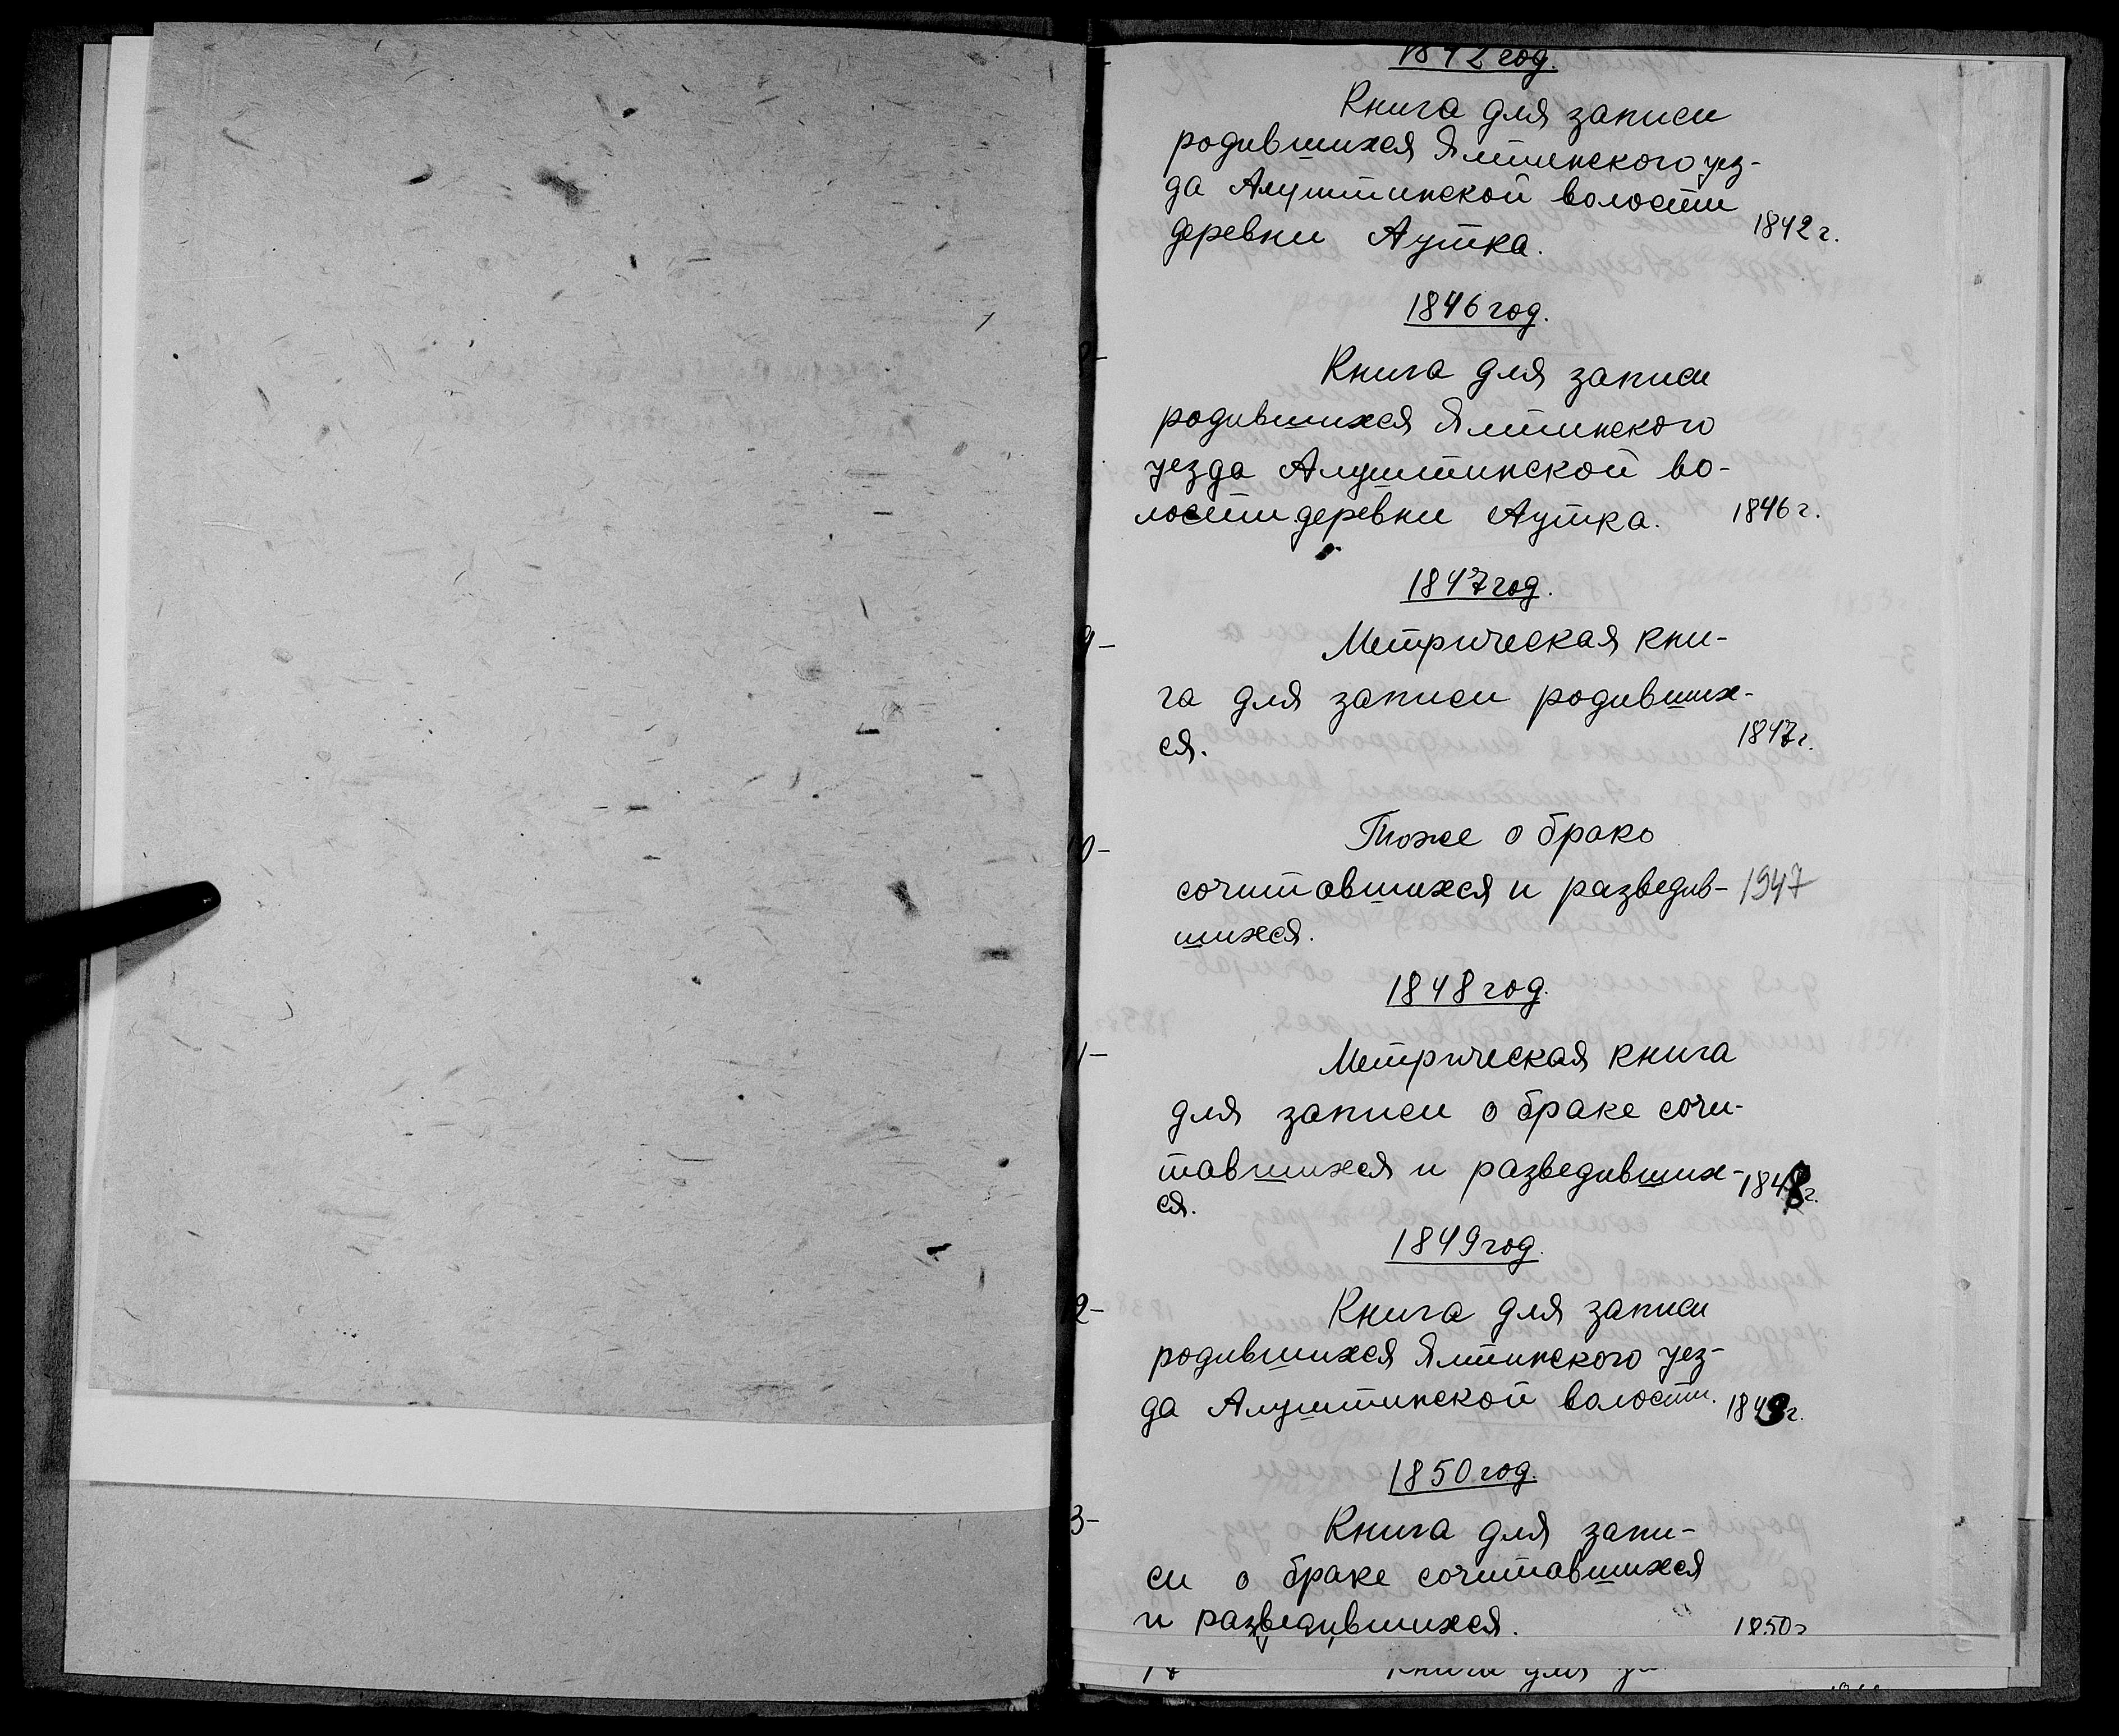 1842 год.
Книга для записи
родившихся Ялтинского уез-
да Алуштинской волости
деревни Аутка. 1842 г.
1846 год.
8- Книга для записи
родившихся Ялтинского
уезда Алуштинской во-
лости деревни Аутка. 1846 г.
1847 год.
9- Метрическая кни-
га для записи родивших-
ся. 1847 г.
10- Тоже о брако
сочитавшихся и разведив- 1947
шихся.
1848 год.
11- Метрическая книга
для записи о браке сочи-
тавшихся и разведивших- 1848 г.
ся.
1849 год.
12- Книга для записи
родившихся Ялтинского уез-
да Алуштинской волости. 1849 г.
1850 год.
13- Книга для запи-
си о браке сочитавшихся
и разведившихся. 1850 г
Книга для